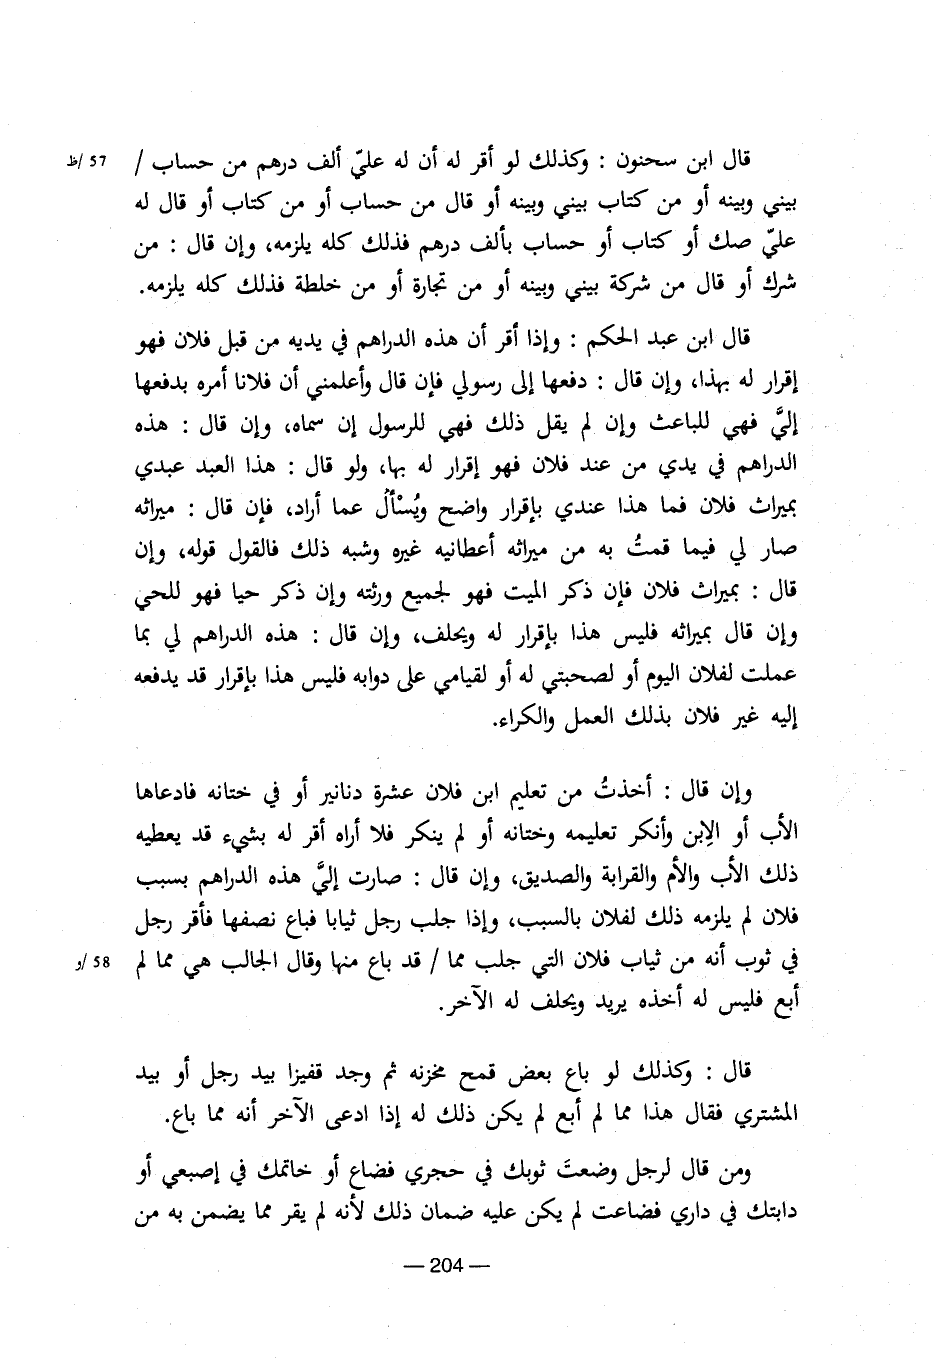 قال ابن سحنون : وكذلك لو أقر له أن له عليّ ألف درهم من حساب / 57 /ظ
بيني وبينه أو من كتاب بيني وبينه أو قال من حساب أو من كتاب أو قال له
عليّ صك أو كتاب أو حساب بألف درهم فذلك كله يلزمه، وإن قال : من
شرك أو قال من شركة بيني وبينه أو من تجارة أو من خلطة فذلك كله يلزمه.
قال ابن عبد الحكم : وإذا أقر أن هذه الدراهم في يديه من قبل فلان فهو
إقرار له بهذا، وإن قال : دفعها إلى رسولي فإن قال وأعلمني أن فلانا أمره بدفعها
إليَّ فهي للباعث وإن لم يقل ذلك فهي للرسول إن سماه، وإن قال : هذه
الدراهم في يدي من عند فلان فهو إقرار له بها، ولو قال : هذا العبد عبدي
بميراث فلان فما هذا عندي بإقرار واضح ويُسْأَلُ عما أراد، فإن قال : ميراثه
صار لي فيما قمتُ به من ميراثه أعطانيه غيره وشبه ذلك فالقول قوله، وإن
قال : بميراث فلان فإن ذكر الميت فهو لجميع ورثته وإن ذكر حيا فهو للحي
وإن قال بميراثه فليس هذا بإقرار له ويحلف، وإن قال : هذه الدراهم لي بما
عملت لفلان اليوم أو لصحبتي له أو لقيامي على دوابه فليس هذا بإقرار قد يدفعه
إليه غير فلان بذلك العمل والكراء.
وإن قال : أخذتُ من تعليم ابن فلان عشرة دنانير أو في ختانه فادعاها
الأب أو الإبن وأنكر تعليمه وختانه أو لم ينكر فلا أراه أقر له بشيء قد يعطيه
ذلك الأب والأم والقرابة والصديق، وإن قال : صارت إليَّ هذه الدراهم بسبب
فلان لم يلزمه ذلك لفلان بالسبب، وإذا جلب رجل ثيابا فباع نصفها فأقر رجل
في ثوب أنه من ثياب فلان التي جلب مما / قد باع منها وقال الجالب هي مما لم 58 /و
أبع فليس له أخذه يريد ويحلف له الآخر.
قال : وكذلك لو باع بعض قمح مخزنه ثم وجد قفيزا بيد رجل أو بيد
المشتري فقال هذا مما لم أبع لم يكن ذلك له إذا ادعى الآخر أنه مما باع.
ومن قال لرجل وضعتَ ثوبك في حجري فضاع أو خاتمك في إصبعي أو
دابتك في داري فضاعت لم يكن عليه ضمان ذلك لأنه لم يقر مما يضمن به من
— 204 —